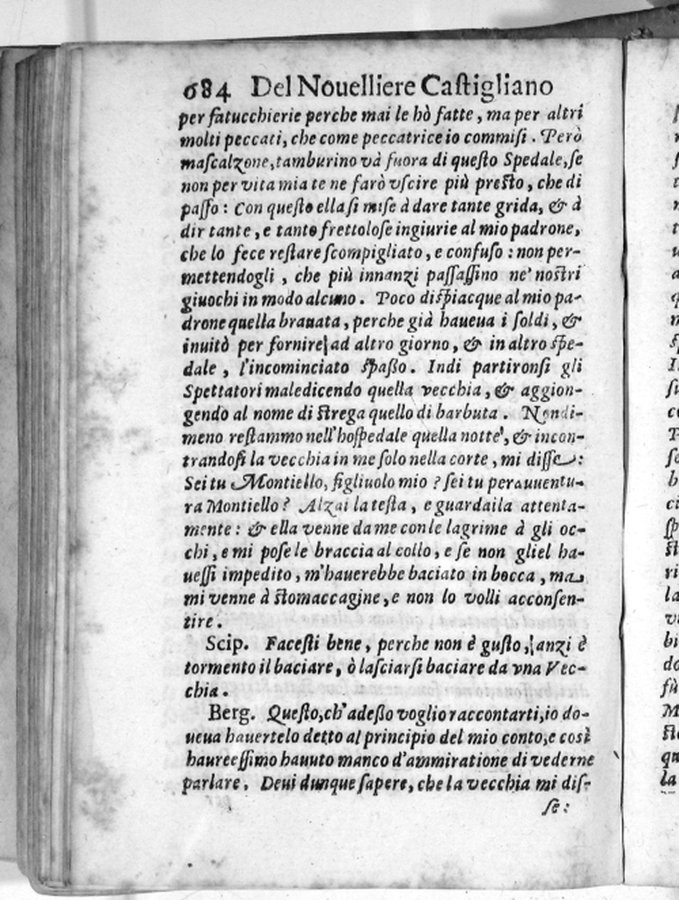 684 Del Nouelliere Castigliano
per fatucchierie perche mai le hò fatte, ma per altri
molti peccati, che come peccatrice io commisi. Però
mascalzone, tamburino và fuora di questo Spedale, se
non per vita mia te ne farò vscire più presto, che di
passo: Con questo ella si mise à dare tante grida, & à
dir tante, e tante frettolose ingiurie al mio padrone,
che lo fece restare scompigliato, e confuso: non per-
mettendogli, che più innanzi passassino ne' nostri
giuochi in modo alcuno. Poco dispiacque al mio pa-
drone quella brauata, perche già haueua i soldi, &
inuitò per fornire ad altro giorno, & in altro spe-
dale, l'incominciato spasso. Indi partironsi gli
Spettatori maledicendo quella vecchia, & aggion-
gendo al nome di strega quello di barbuta. Nondi-
meno restammo nell'hospedale quella notte, & incon-
trandosi la vecchia in me solo nella corte, mi disse:
Sei tu Montiello, figliuolo mio? sei tu perauuentu-
ra Montiello? Alzai la testa, e guardaila attenta-
mente: & ella venne da me con le lagrime à gli oc-
chi, e mi pose le braccia al collo, e se non gliel ha-
uessi impedito, m'hauerebbe baciato in bocca, ma
mi venne à stomaccagine, e non lo volli acconsen-
tire.
Scip. Facesti bene, perche non è gusto, anzi è
tormento il baciare, ò lasciarsi baciare da vna Vec-
chia.
Berg. Questo, ch'adesso voglio raccontarti, io do-
ueua hauertelo detto al principio del mio conto, e così
haureessimo hauuto manco d'ammiratione di vederne
parlare. Deui dunque sapere, che la vecchia mi dis-
se: